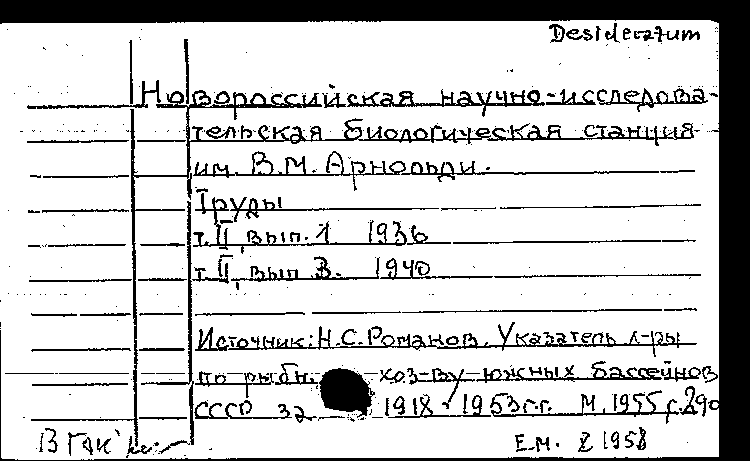 Desideratum
Новороссийская научно-исследова-
тельская биологическая станция
им. В.М. Арнольди.
Труды
т. II, вып. 1 1936
т. II, вып 3. 1940
Источник: Н.С. Романов. Указатель л-ры
по рыбн. хоз-ву южных бассейнов
СССР за 1918-1953 г.г. М, 1955 с.290
В ГАК
Е.М. Z 1958